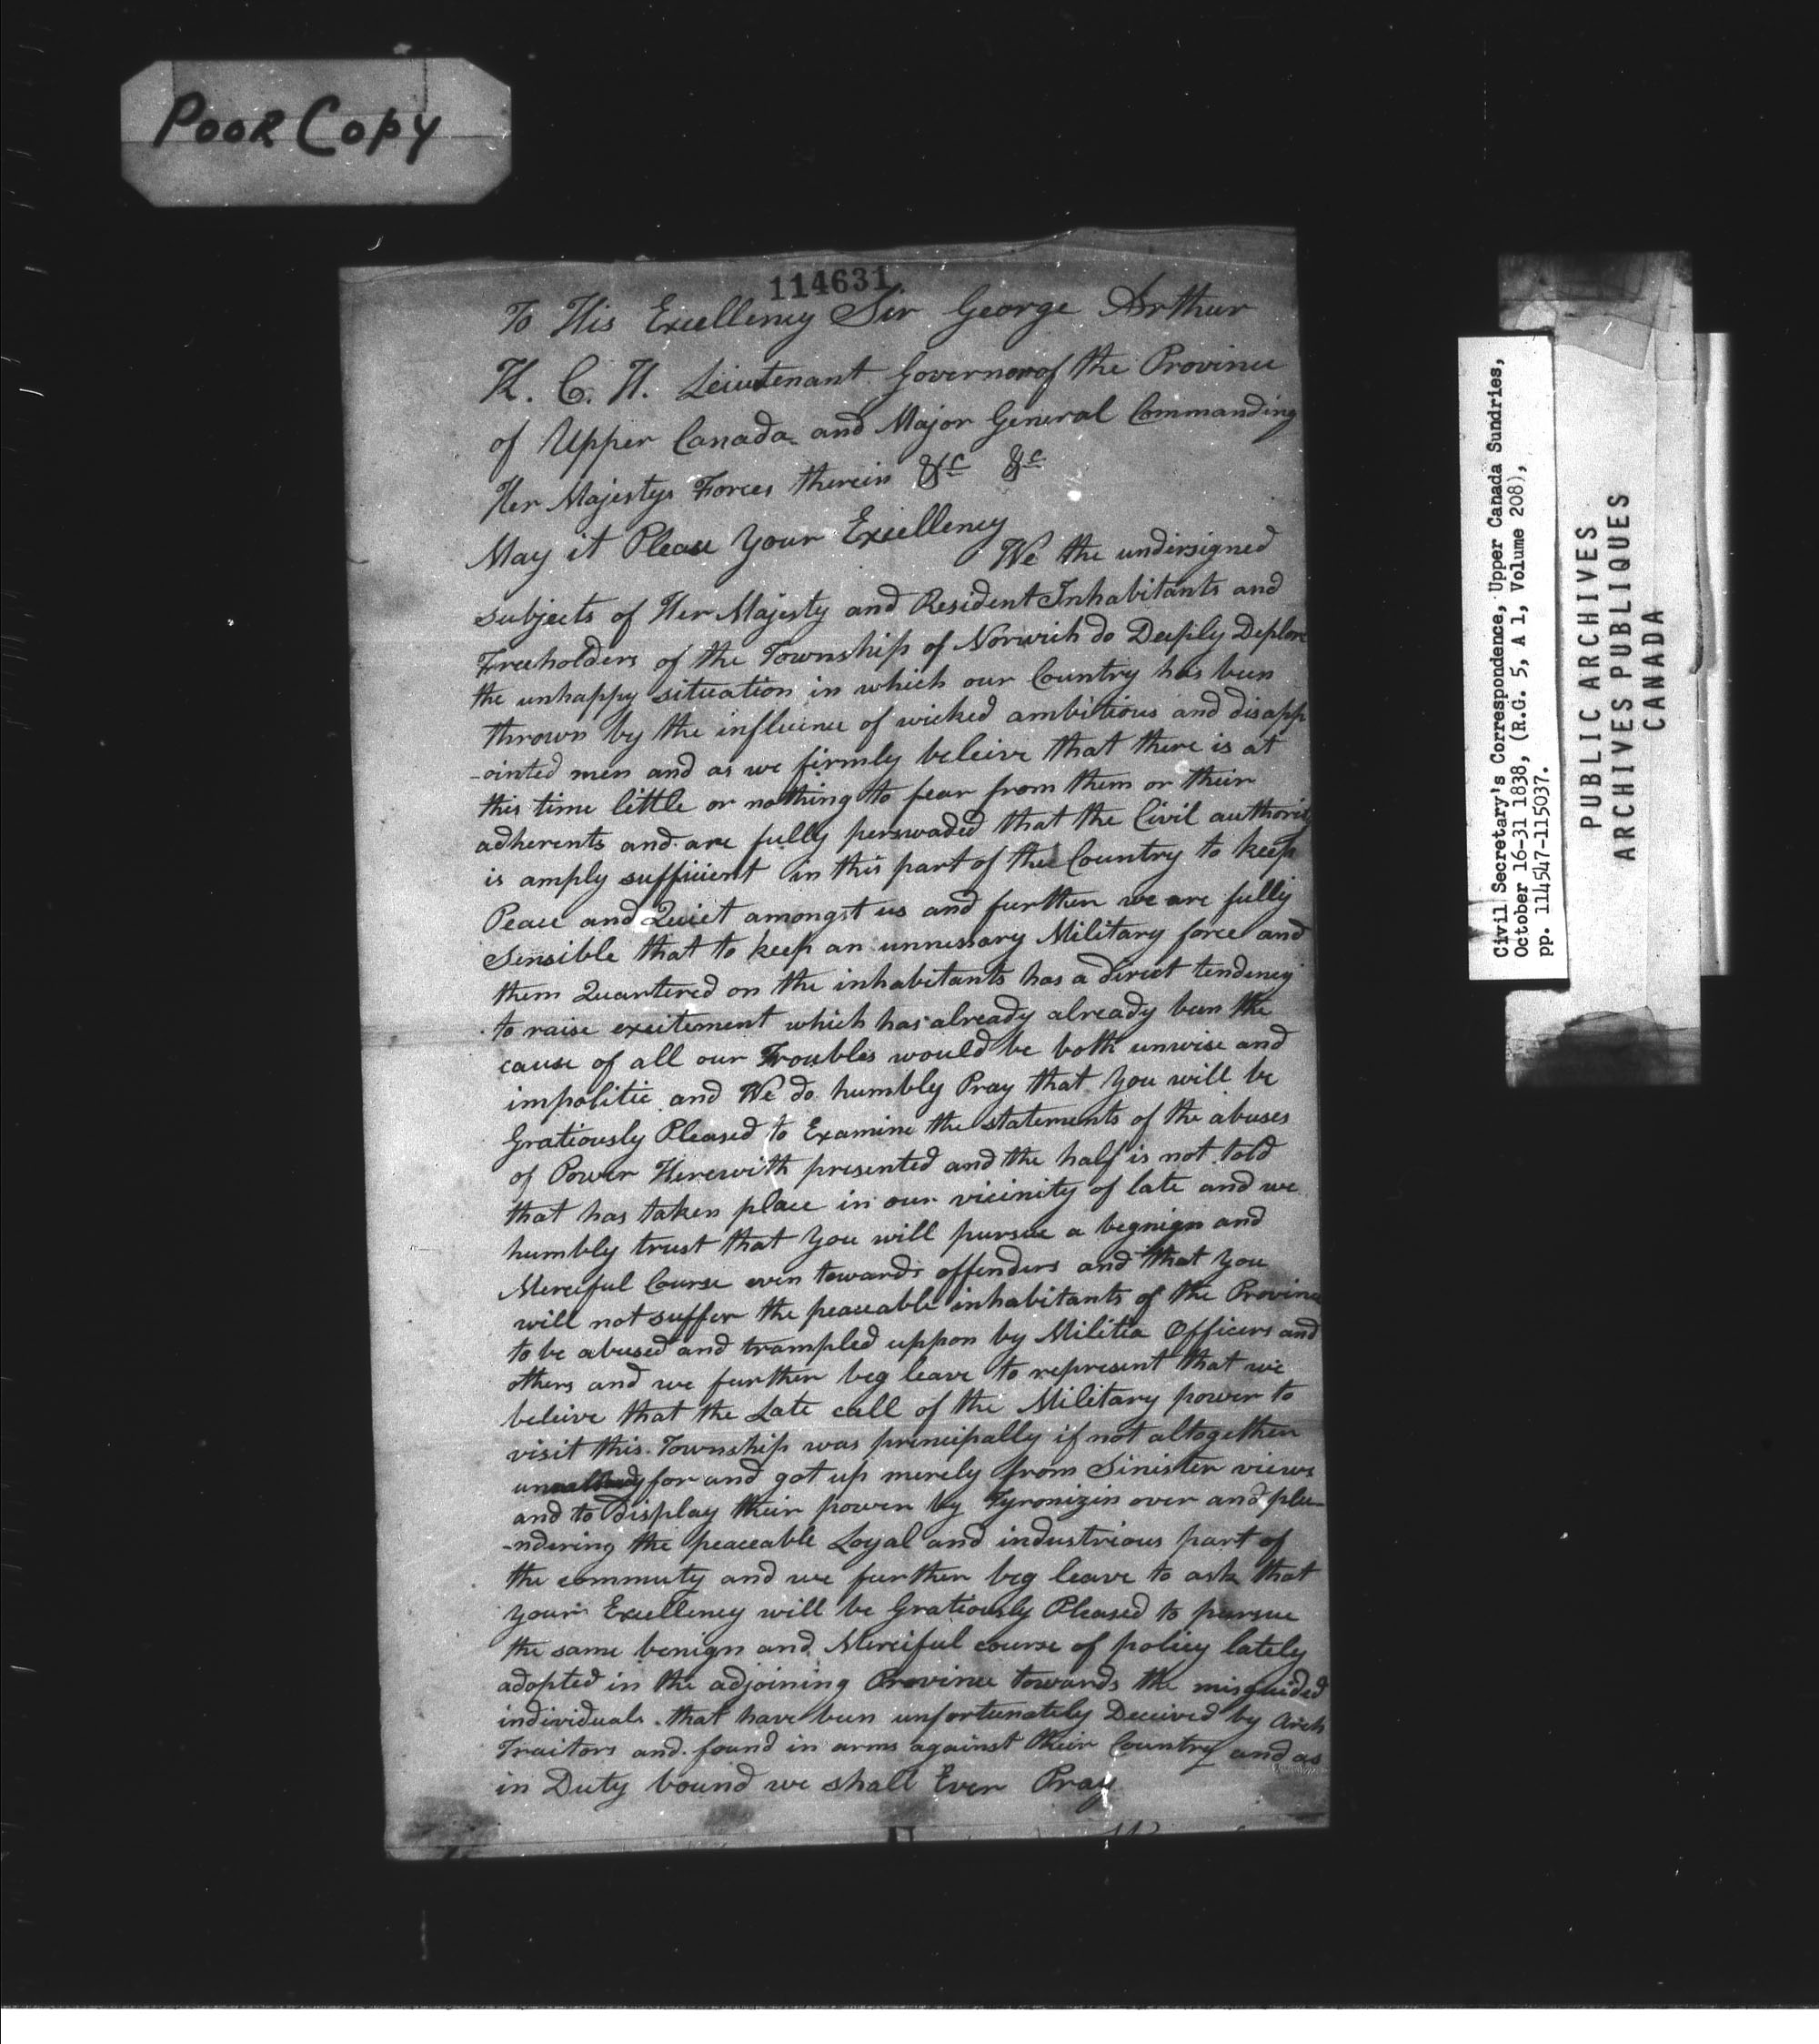 Poor Copy
114631
To His Excellency Sir George Arthur
K. C. H. Leiutenant Governor of the Province
of Upper Canada and Major General Commanding
Her Majestys Forces therein &c &c
May it Please Your Excellency
We the undersigned
subjects of Her Majesty and Resident Inhabitants and
Freeholders of the Township of Norwich do Deeply Deplore
the unhappy situation in which our Country has been
thrown by the influence of wicked ambitious and disapp
-ointed men and as we firmly beleive that there is at
this time little or nothing to fear from them or their
adherents and are fully perswaded that the Civil authority
is amply sufficient in this part of the Country to keep
Peace and Quiet amongst us and further we are fully
Sensible that to keep an unnessary Military force and
them Quartered on the inhabitants has a direct tendency
to raise excitement which has already already been the
cause of all our Troubles would be both unwise and
impolitic and We do humbly Pray that You will be
Gratiously Pleased to Examine the statements of the abuses
of Power Herewith presented and the half is not told
that has taken place in our vicinity of late and we
humbly trust that You will pursue a begnign and
Merciful Course even towards offenders and that You
will not suffer the peaceable inhabitants of the Province
to be abused and trampled uppon by Militia Officers and
others and we further beg leave to represent that we
beleive that the Late call of the Military power to
visit this Township was principally if not altogether
for and got up merely from Sinister views
and to Display their power by Tyronizin over and plu-
-ndering the peaceable Loyal and industrious part of
the commuty and we further beg leave to ask that
your Excellency will be Gratiously Pleased to pursue
the same benign and Merciful course of policy lately
adopted in the adjoining Province towards the misguided
individuals that have been unfortunately Deceived by Arch
Traitors and found in arms against their Country and as
in Duty bound we shall Ever Pray
Civil Secretary's Correspondence, Upper Canada Sundries,
October 16-31 1838, (R.G. 5, A 1, Volume 208),
pp. 114547-115037.
PUBLIC ARCHIVES
ARCHIVES PUBLIQUES
CANADA